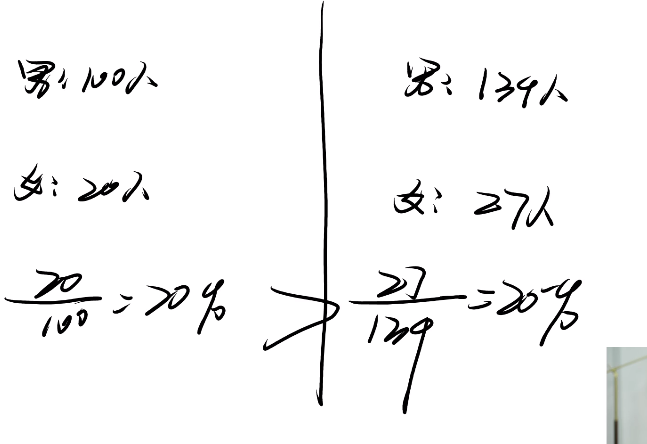 男：100人
女：20人
20/100 = 20%
>
男：134人
女：27人
27/134 = 20%